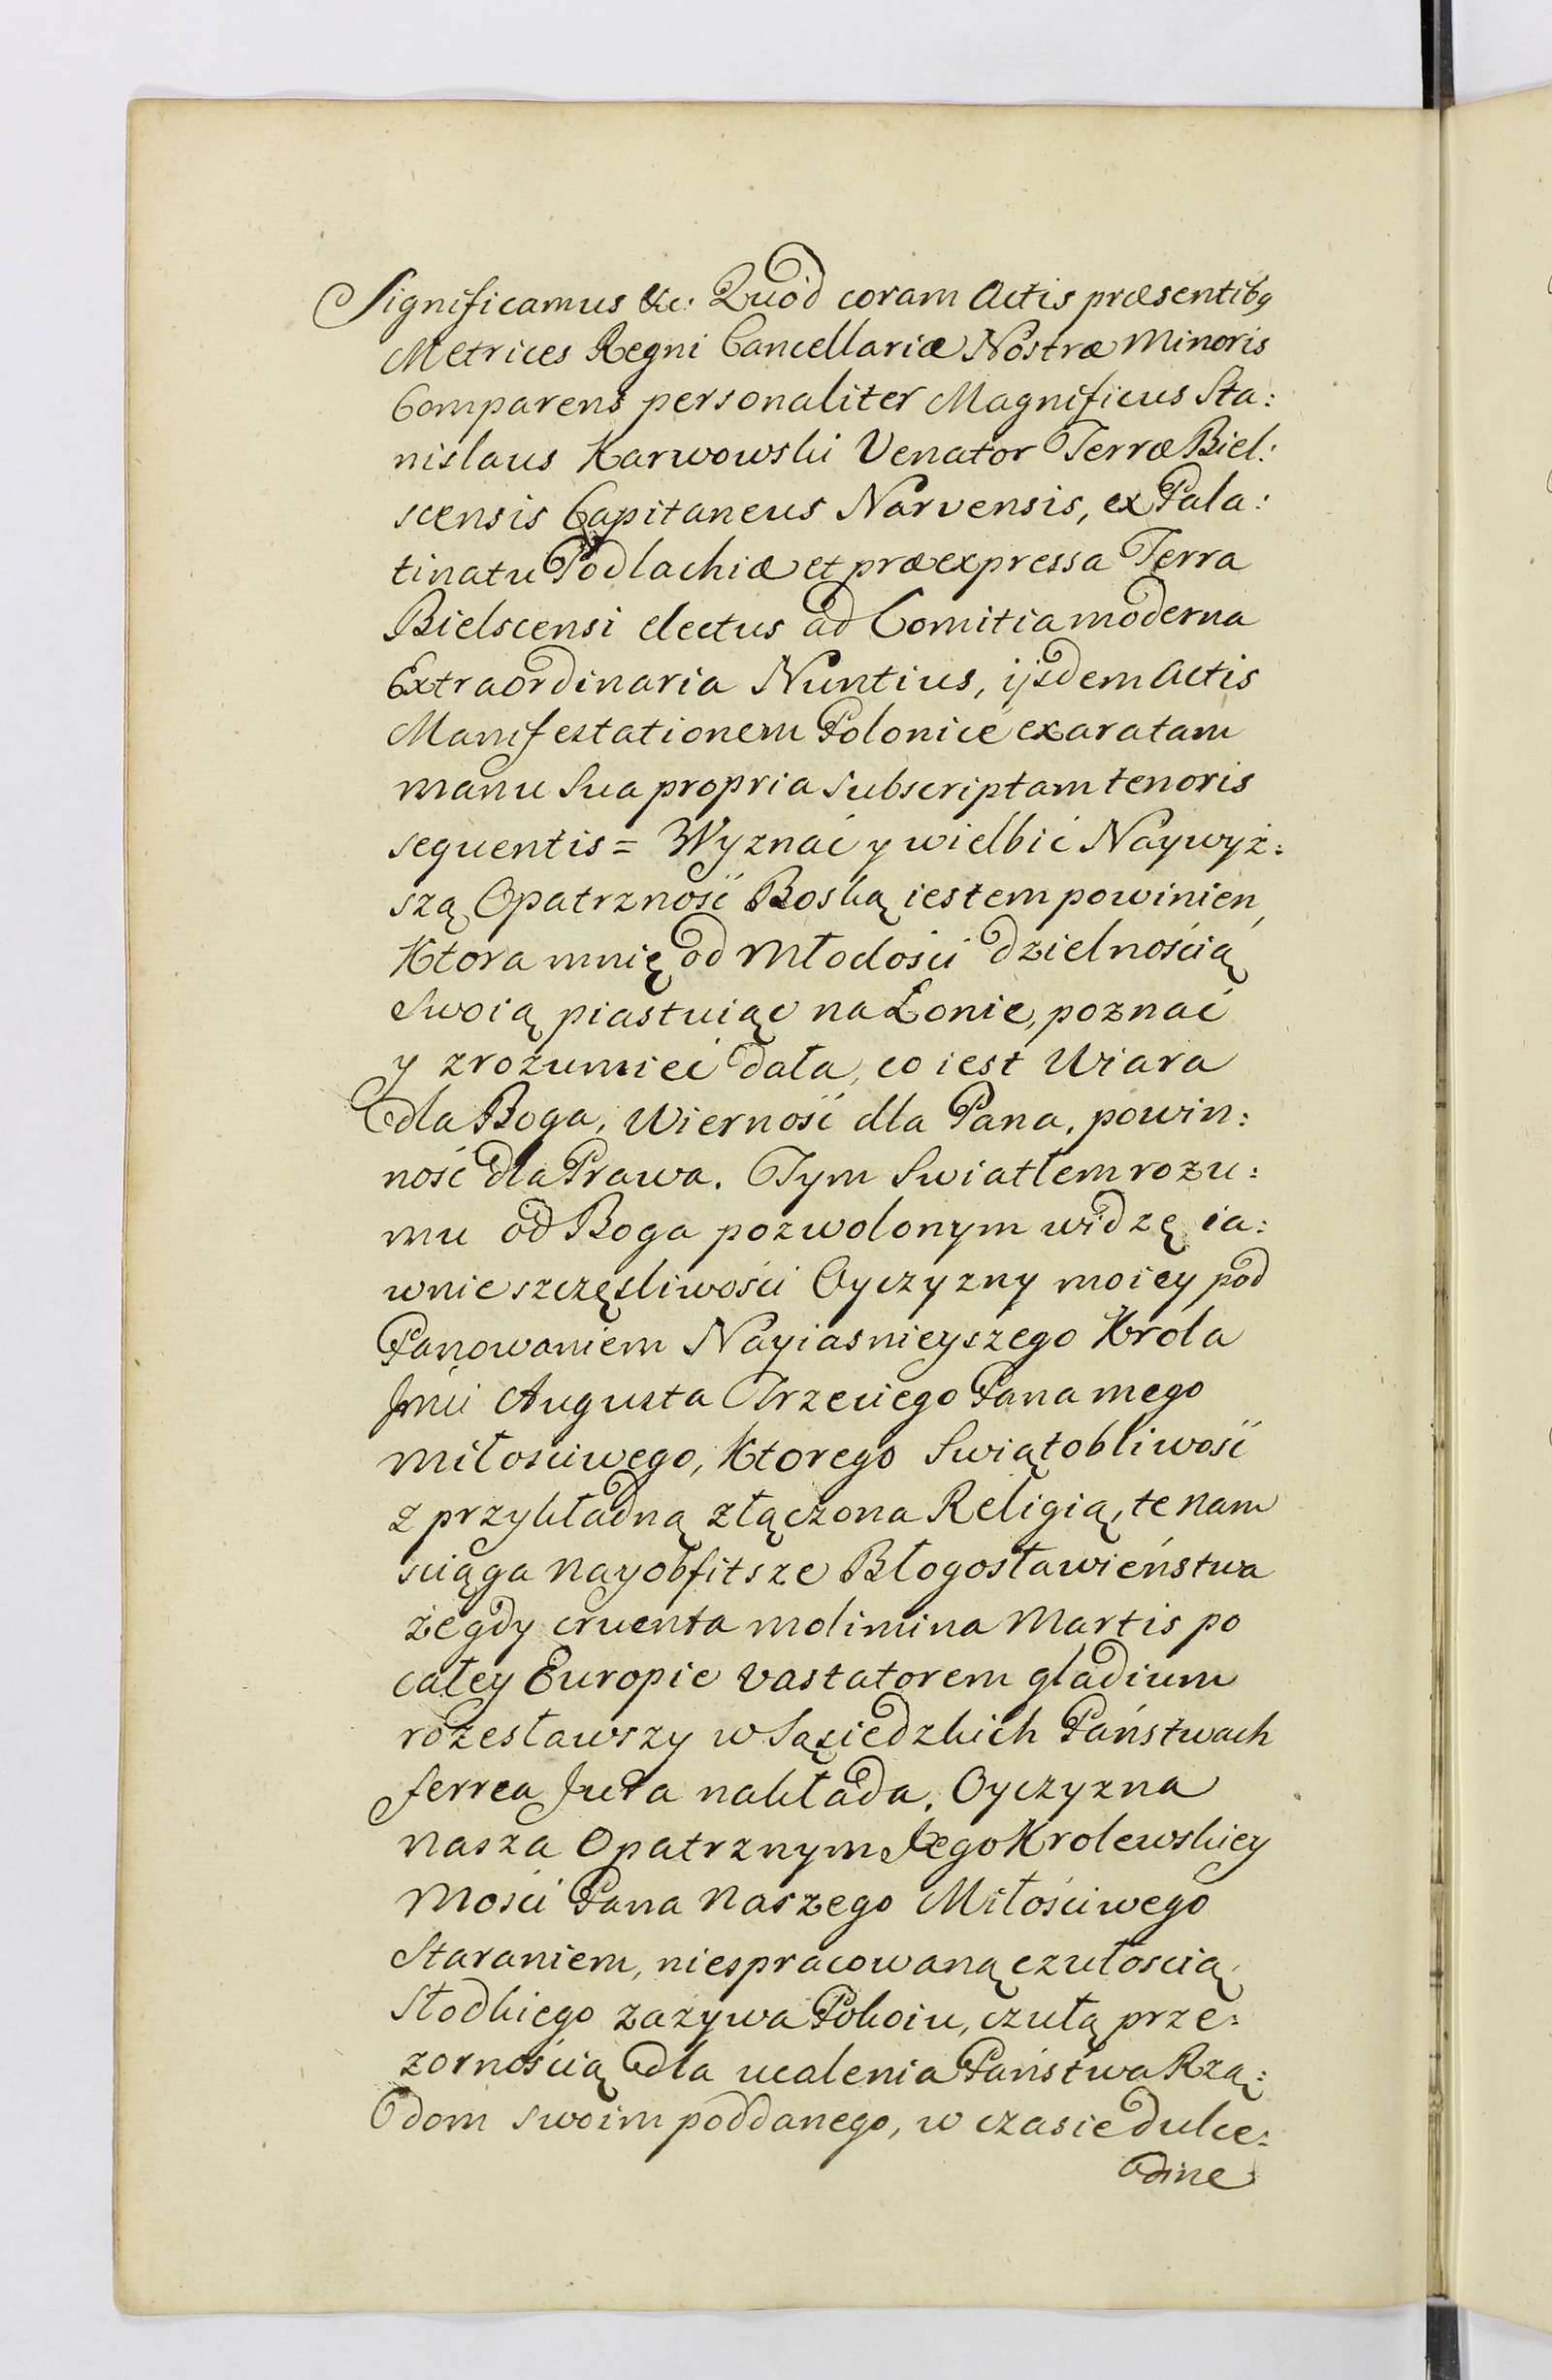 Significamus &c: Quod coram Actis præsentibq
Metrices Regni Cancellariæ Nostræ Minoris
Comparens personaliter Magnificus Sta:
nislaus Karwowski Venator Terræ Biel:
scensis Capitaneus Narvensis, ex Pala:
tinatu Podlachiæ et præexpressa Terra
Bielscensi electus ad Comitia moderna
Extraordinaria Nuntius, ijsdem Actis
Manifestationem Polonicè exaratam
manu Sua propria subscriptam tenoris
sequentis = Wyznać y wielbić Naywyż:
szą Opatrzność Boską iestem powinien,
Ktora mnię od Młodości dzielnością
Swoią piastuiąc na Łonie, poznać
y zrozumieć dała, co iest Wiara
dla Boga, Wierność dla Pana, powin:
ność dla Prawa. Tym Swiatłem rozu:
mu od Boga pozwolonym widzę ia:
wnie szczęśliwości Oyczyzny moiey pod
Panowaniem Nayiasnieyszego Krola
Jmci Augusta Trzeciego Pana mego
Miłościwego, Ktorego Swiątobliwość
z przykładną złączona Religią, te nam
sciąga Nayobfitsze Błogosławieństwa
że gdy cruenta molimina Martis po
całey Europie vastatorem gladium
rozesławszy w Sąsiedzkich Państwach
ferrea Jura nakłada, Oyczyzna
Nasza Opatrznym Jego Krolewskiey
Mości Pana Naszego Miłościwego
Staraniem, niespracowaną czułoscią,
Słodkiego zażywa Pokoiu, czułą prze:
zornością dla ucalenia Państwa Rzą:
dom swoim poddanego, w czasie dulce:
dine